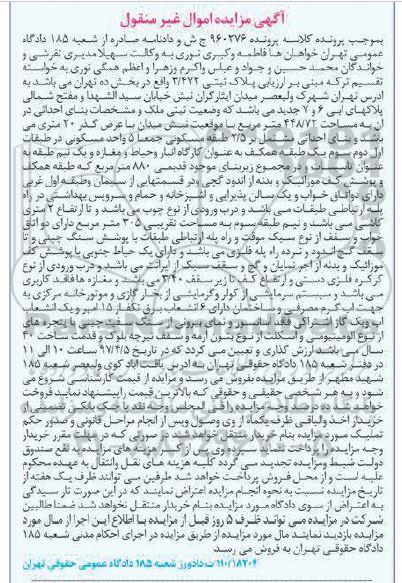 آگهی مزایده اموال غیر منقول
بموجب پرونده کلاسه پرونده ۹۶۰۲۷۶ ج ش و دادنامه صادره از شعبه ۱۸۵ دادگاه
عمومی تهران خواهان ها فاطمه و کبری نوری به وکالت سهیلا مدیری تفرشی و
خواندگان محمد حسین و جواد و عباس و اکرم و زهرا و اعظم همگی نوری به خواسته
تقسیم ترکه مبنی بر ارزیابی پلاک ثبتی ۲/۴۷۲ واقع در بخش ده تهران می باشد به
آدرس تهران شهرک ولیعصر میدان ایثارگران نبش خیابان سید الشهدا و مفتح شمالی
پلاکهای آبی ۶ و ۷ جدید می باشد که وضعیت ثبتی ملک و مشخصات بنای احداثی در
آن به مساحت ۴۴۸/۷۲ متر مربع با موقعیت نبش میدان با عرض گذر ۲۰ متری می
باشد و بنای احداثی مشتمل بر ۲/۵ طبقه مسکونی جمعا ۵ واحد مسکونی در طبقات
اول دوم سوم یک طبقه همکف به عنوان کارگاه انبار و حیاط و مغازه و یک نیم طبقه به
عنوان در مجموع زیربنای موجود قدیمی ۸۸۰ متر مربع که طبقه همکف
و پوشش کف موزائیک و بدنه از اندود گچی و در قسمتهایی از سیمان و طبقه اول غربی
دارای دو اتاق خواب و یک سالن پذیرایی و آشپزخانه و حمام و سرویس بهداشتی در راه
پله ارتباطی طبقات می باشد و درب ورودی از نوع چوب می باشد و تا ارتفاع ۲ متری
کاشی می باشد و نیم طبقه سوم به مساحت تقریبی ۳۰۵ متر مربع دارای دو اتاق
خواب و سقف از نوع سبک موقت و راه پله ارتباطی طبقات با پوشش سنگ چینی و تا
سقف گچ اندود و نرده راه پله فلزی می باشد و دارای یک حیاط جنوبی با پوشش کف
موزائیک و بدنه از آجر نمایان و گچ و سقف سبک از ایرانت می باشد و درب ورودی از نوع
کرکره فلزی دستی و ارتفاع کف تا زیر سقف ۳/۴۰ می باشد و مغازه ها فاقد کاربری
می باشد و سیستم سرمایشی از کولر و گرمایشی از بخاری گازی و موتورخانه مرکزی به
جهت آب گرم مصرفی و ساختمان دارای ۶ انشعاب برق تکفاز ۱۵ آمپر و یک انشعاب
آب و یک گاز اشتراکی فاقد آسانسور و نمای بیرونی از سنگ سفید چینی و پنجره های
از نوع آلومینیومی و اسکلت از نوع بتون آرمه و سقف تیرچه بلوک و قدمت ساخت ۳۰
سال می باشد ارزش گذاری و تعیین می گردد که در تاریخ ۹۷/۴/۵ ساعت ۱۰ الی ۱۱
در دفتر شعبه ۱۸۵ دادگاه حقوقی تهران به آدرس یافت آباد کوی ولیعصر شعبه ۱۸۵
شهید مطهر از طریق مزایده بفروش می رسد و مزایده از قیمت کارشناسی شروع می
شود و به هر شخص حقیقی و حقوقی که بالاترین قیمت را پیشنهاد نماید فروخته
خواهد شد ده درصد قیمت مزایده را فی المجلس وجه نقد یا چک بانکی تضمینی از
خریدار اخذ والباقی ظرف یکماه از وی وصول و پس از انجام مراحل قانونی و صدور حکم
تملیک مورد مزایده بنام خریدار منتقل خواهد شد و در صورتی که در موعد مقرر خریدار
وجه مزایده را پرداخت ننماید سپرده وی پس از کسر هزینه های مزایده به نفع صندوق
دولت ضبط و مزایده تجدید می گردد کلیه هزینه های نقل و انتقال به عهده محکوم
علیه است و از محل فروش پرداخت خواهد شد طرفین می توانند ظرف یک هفته از
تاریخ مزایده نسبت به نحوه انجام مزایده اعتراض نمایند که در این صورت تا رسیدگی
به اعتراض از سوی دادگاه مورد مزایده بنام خریدار منتقل نخواهد شد ضمنا طالبین
شرکت در مزایده می توانند ظرف ۵ روز قبل از مزایده با اطلاع این اجرا از مال مورد
مزایده بازدید نمایند مال مورد مزایده از طریق مزایده در اجرای احکام مدنی شعبه ۱۸۵
دادگاه حقوقی تهران به فروش می رسد
۱۱۰/۱۸۲۰۴ ت دادورز شعبه ۱۸۵ دادگاه عمومی حقوقی تهران